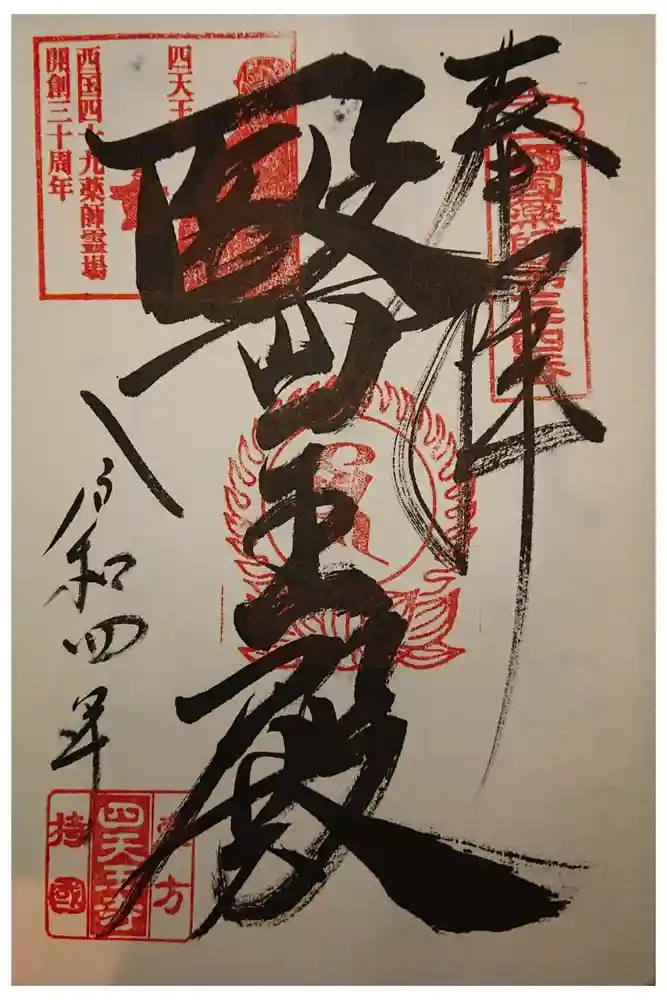 奉拝
醫王殿
令和四年
四天王
西国四十九薬師霊場
開創三十周年
四天王寺
持國